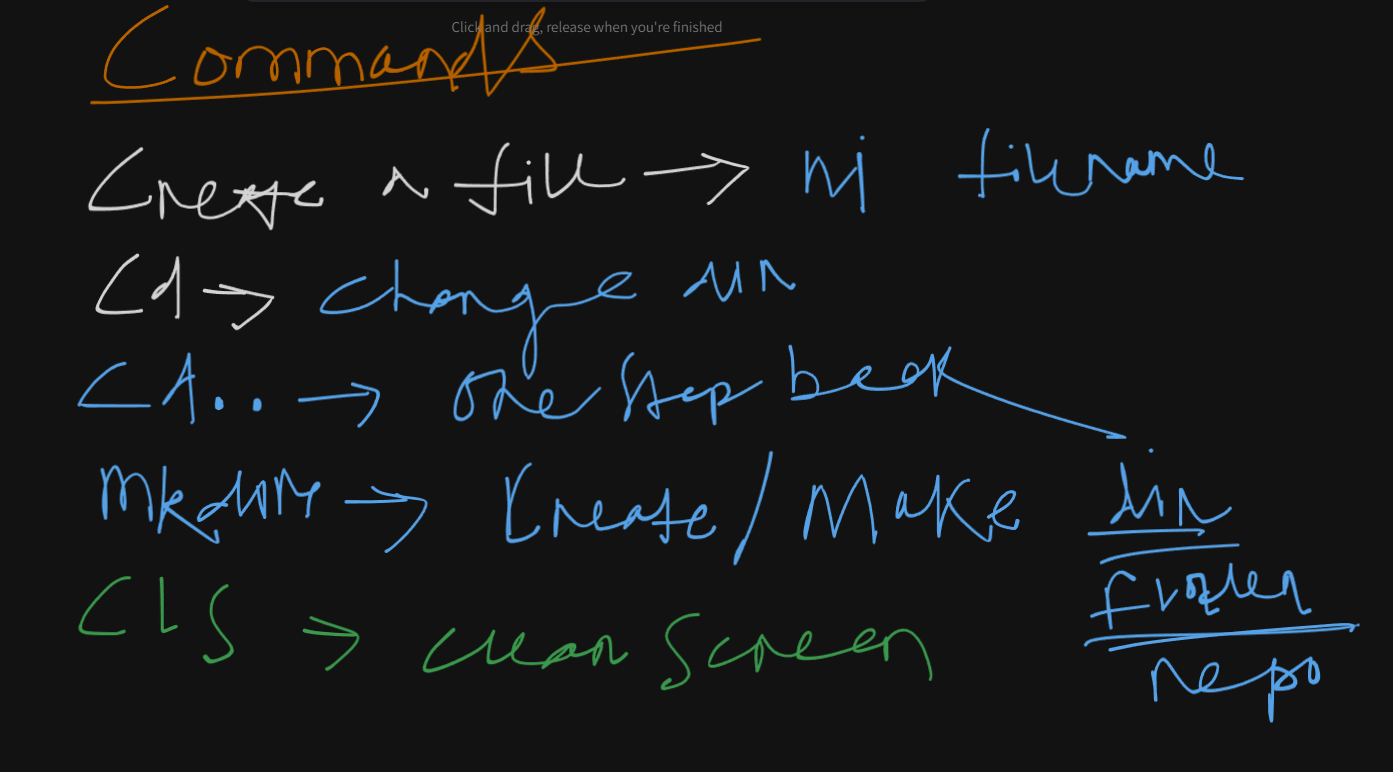 Click and drag, release when you're finished
Commands
Create a file → ni filename
Cd → change dir
Cd.. → one step back
Mkdir → Create / Make dir
folder
repo
CLS → clear Screen